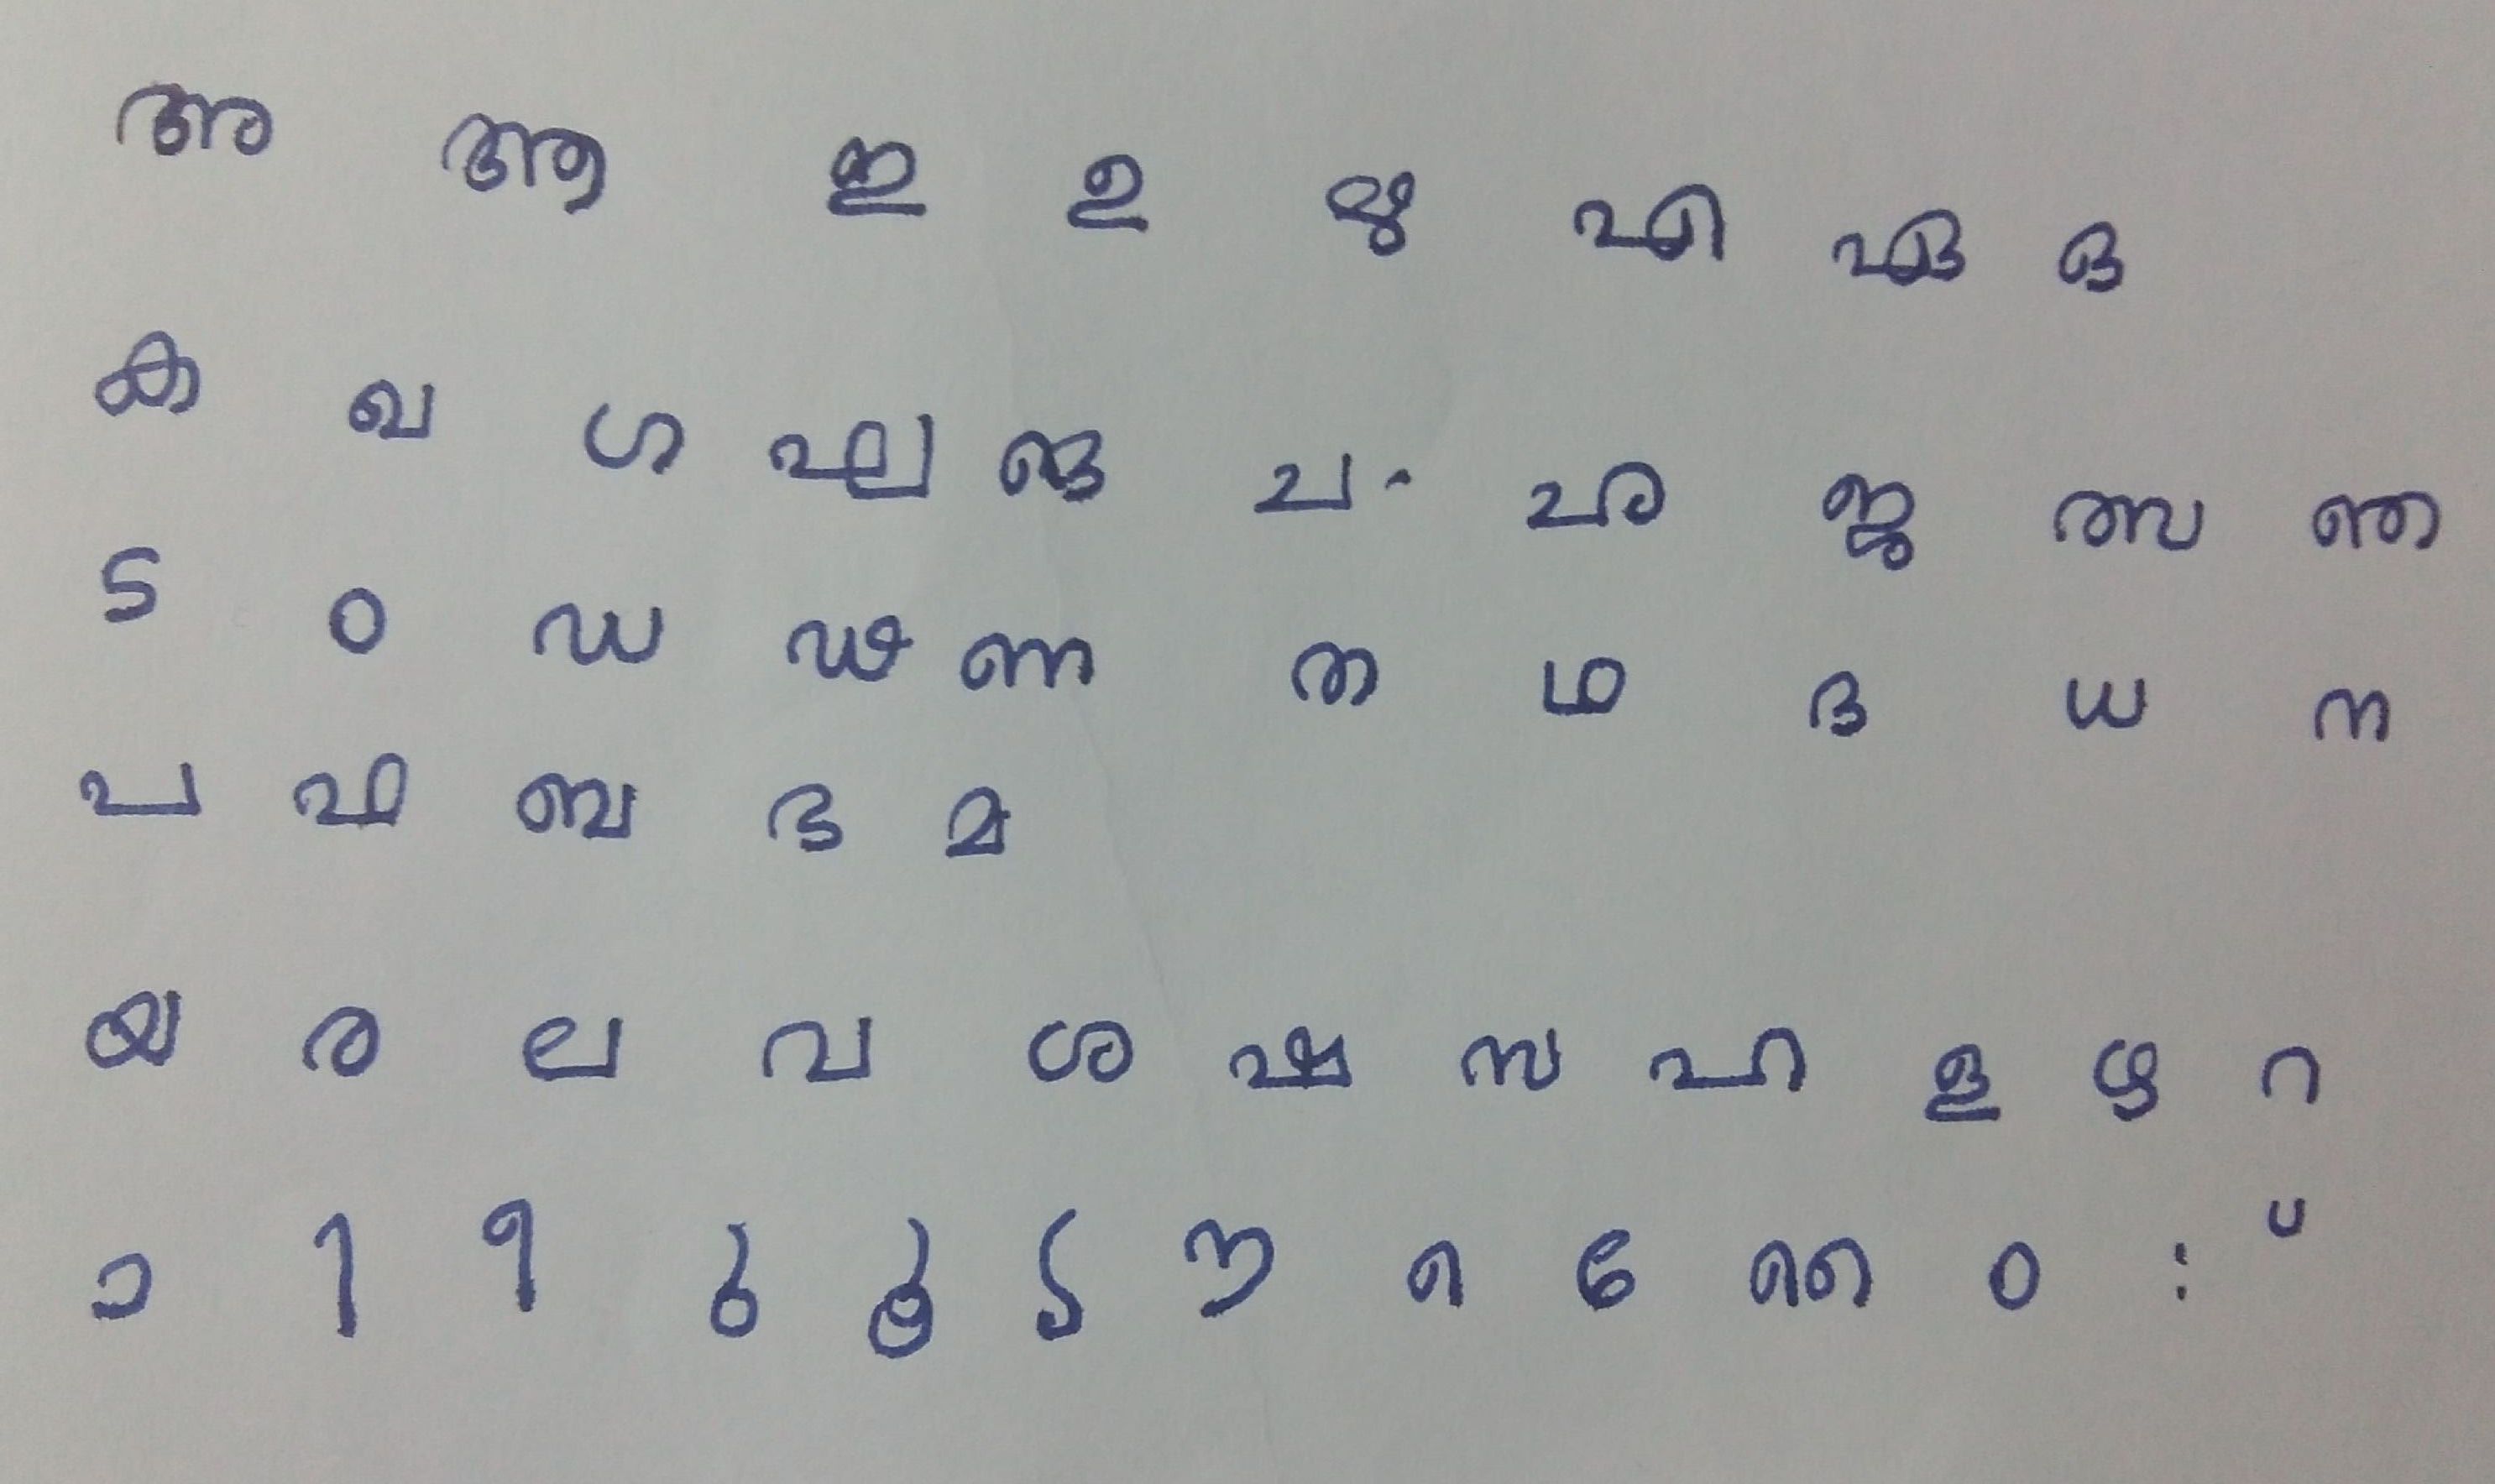 അ ആ ഇ ഉ ഋ എ ഏ ഒ
ക ഖ ഗ ഘ ങ ച ഛ ജ ഝ ഞ
ട ഠ ഡ ഢ ണ ത ഥ ദ ധ ന
പ ഫ ബ ഭ മ
യ ര ല വ ശ ഷ സ ഹ ള ഴ റ
ാ ി ീ ു ൂ ൃ ൗ െ േ ൈ ം ഃ ്